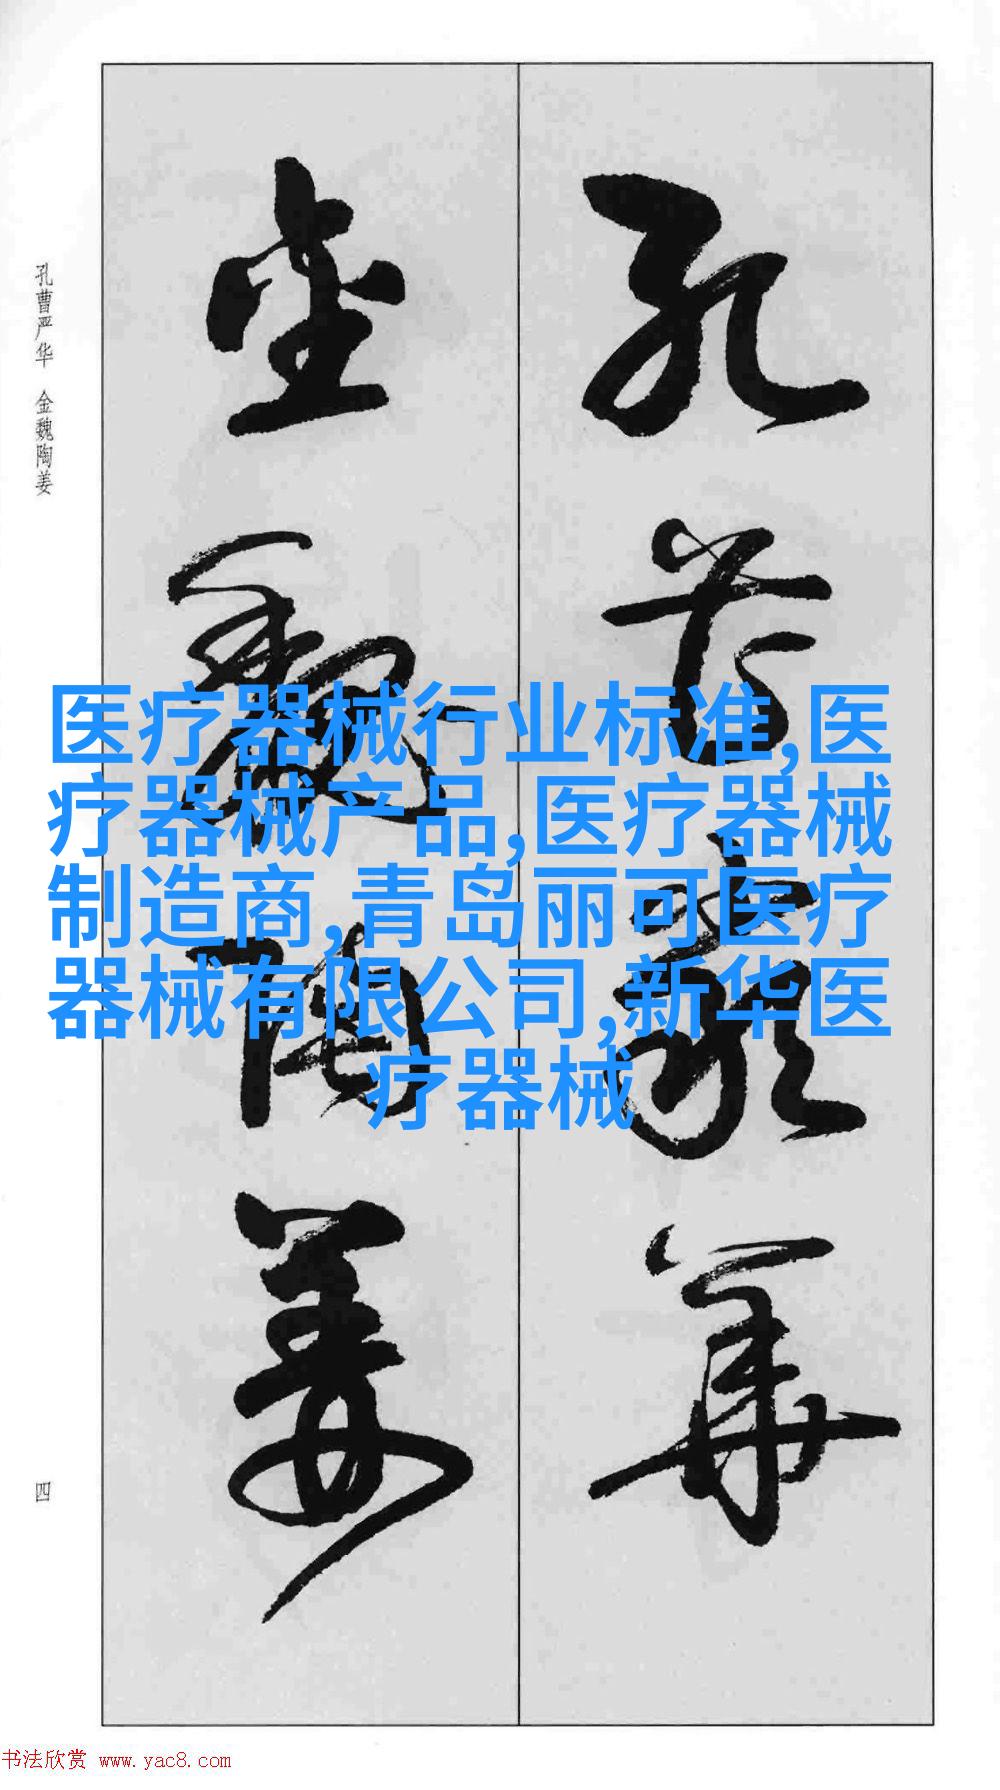 孔曹严华 金魏陶姜
孔曹严华
金魏陶姜
医疗器械行业标准,医
疗器械产品,医疗器械
制造商,青岛丽可医疗
器械有限公司,新华医
疗器械
四
书法欣赏 www.yac8.com